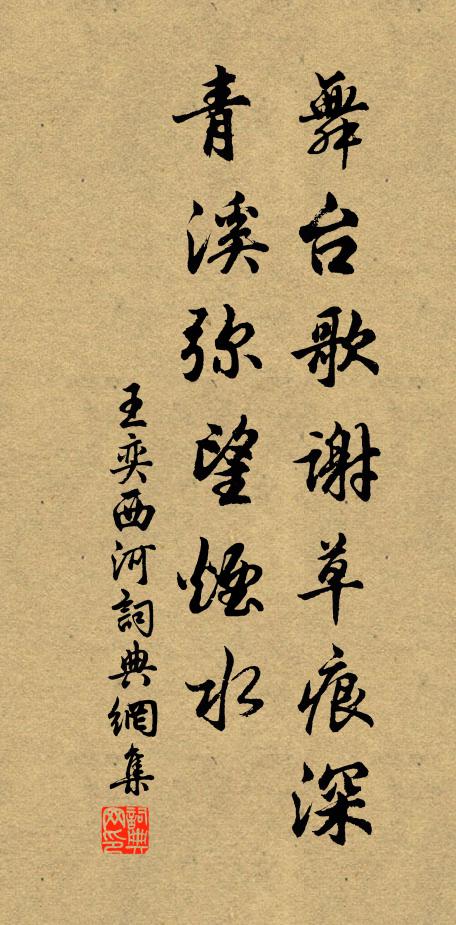 舞台歌谢草痕深
青溪弥望煙水
王奕西河詞典網集
詞典网印